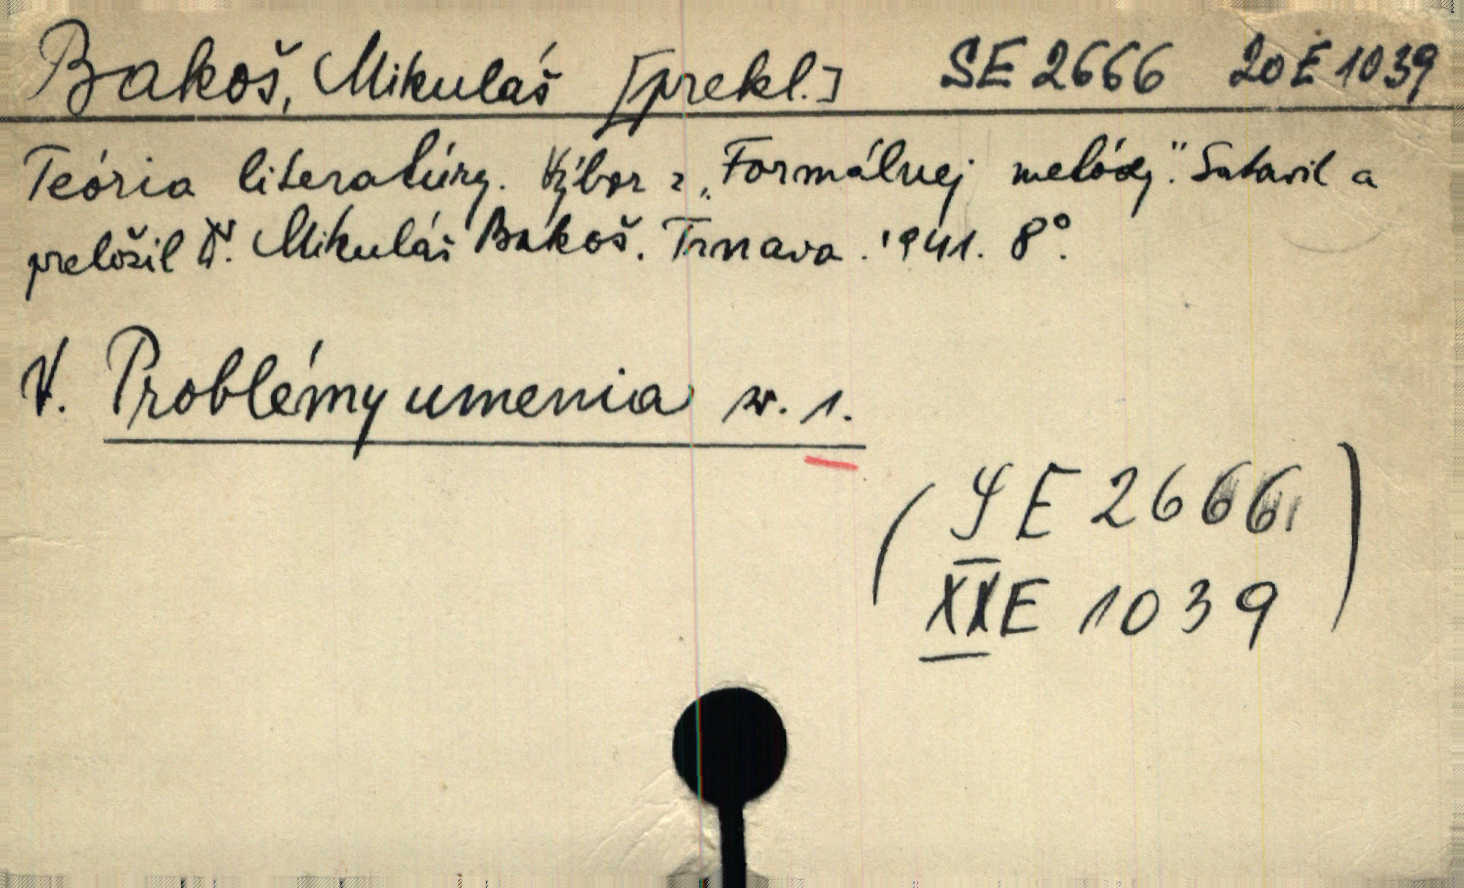 Bakoš, Mikuláš [prekl.] SE 2666 20 E 1039
Teória literatúry. Výbor z „Formálnej metódy". Sostavil a
preložil Dr. Mikuláš Bakoš. Trnava. 1941. 8°.
V. Problémy umenia sv. 1.
(SE 2666
XX E 1039)